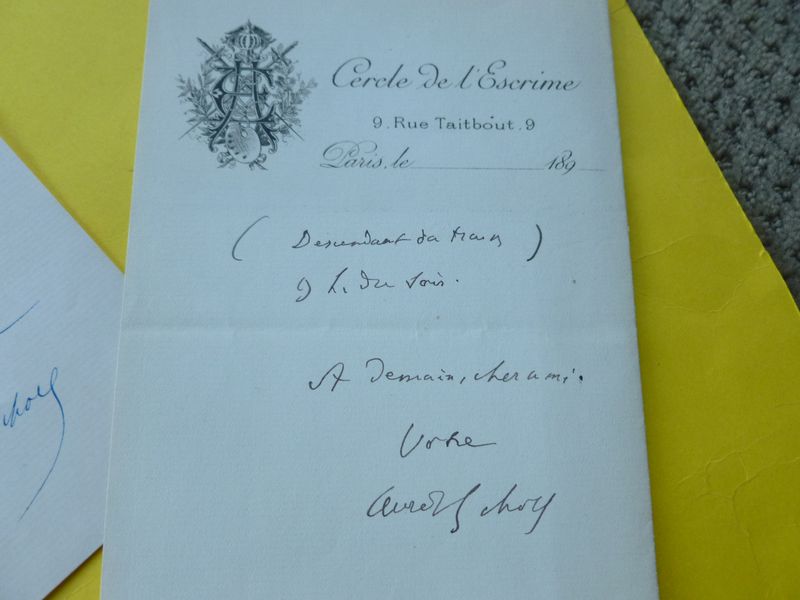 Cercle de l'Escrime
9. Rue Taitbout. 9
Paris, le 189
(Descendant du train)
9 h. du soir.
A demain, cher ami.
Votre
Aurélien Scholl